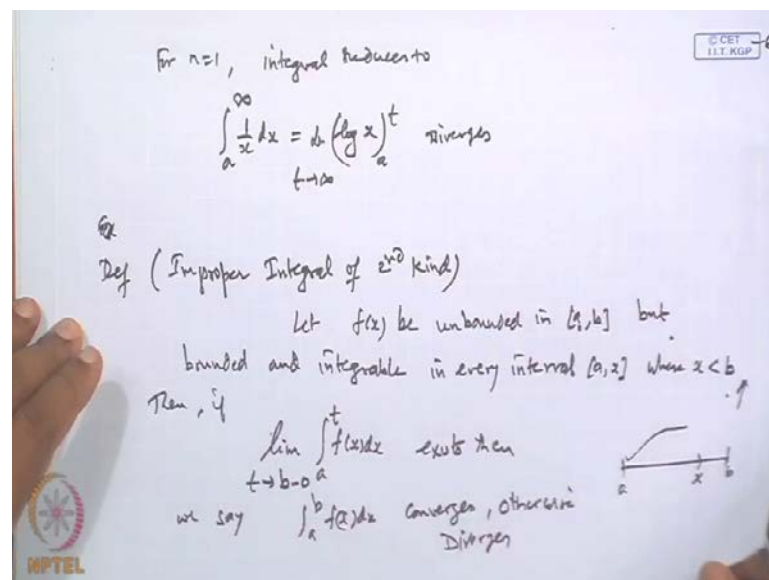 For n=1, integral reduces to
© CET
I.I.T. KGP
∫_a^∞ 1/x dx = (log x)_a^t Diverges
t→∞
Ex
Def (Improper Integral of 2nd kind)
Let f(x) be unbounded in [a,b] but
bounded and integrable in every interval [a,x] where x<b.
Then, if
lim_{t→b-0} ∫_a^t f(x)dx exists then
a x b
we say ∫_a^b f(x)dx converges, otherwise
Diverges
NPTEL